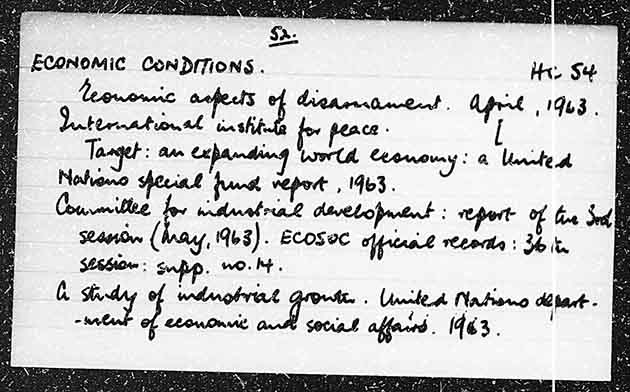 52.
ECONOMIC CONDITIONS. HC 54
Economic aspects of disarmament. April, 1963.
International institute for peace. [
Target: an expanding world economy: a United
Nations special fund report, 1963.
Committee for industrial development: report of the 3rd
session (May, 1963). ECOSOC official records: 36th
session: supp. no. 14.
A study of industrial growth. United Nations depart-
-ment of economic and social affairs. 1963.